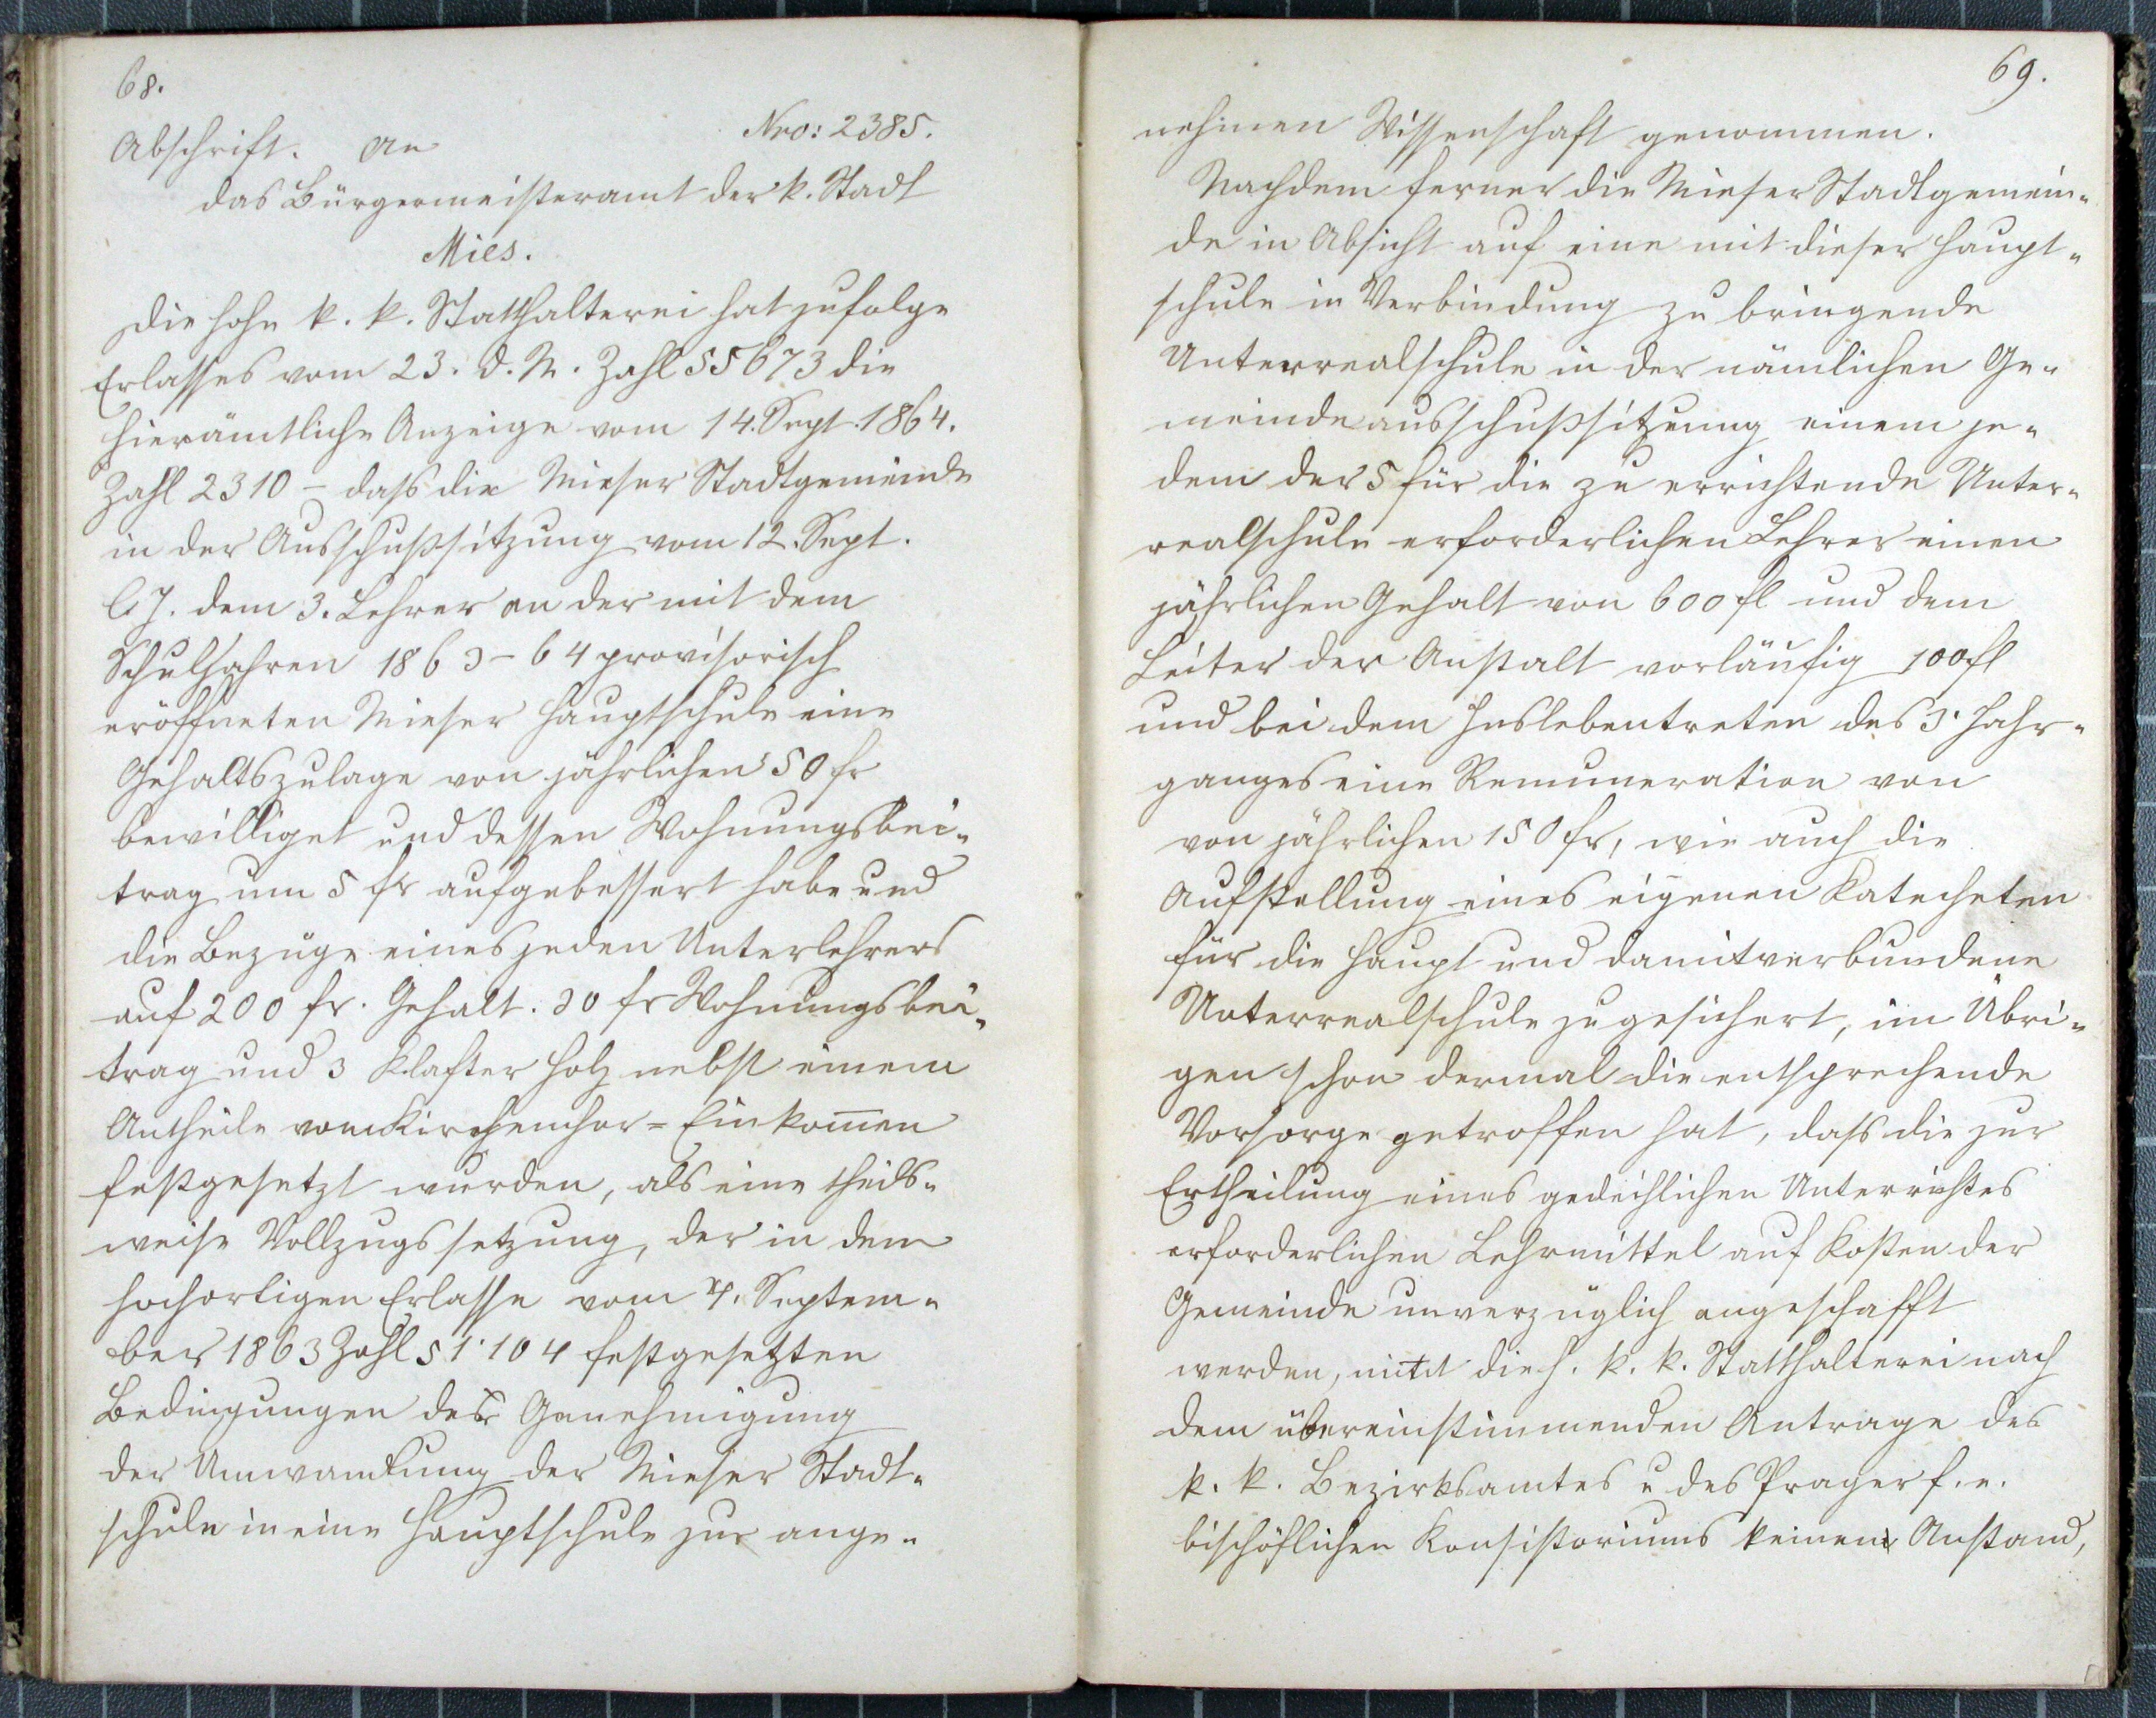 68.
Nro: 2385.
Abschrift. An
das Bürgermeisteramt der k. Stadt
Mies.
Die hohe k. k. Statthalterei hat zufolge
Erlasses vom 23. d. M. Zahl 55673 die
hierämtliche Anzeige vom 14. Sept. 1864.
Zahl 2310 – daß die Mieser Stadtgemeinde
in der Ausschußsitzung vom 12. Sept.
l J. dem 3. Lehrer an der mit dem
Schuljahren 1863–64 provisorisch
eröffneten Mieser Hauptschule eine
Gehaltszulage von jährlichen 50 fr
bewilliget und dessen Wohnungsbei-
trag um 5 fr aufgebessert habe und
die Bezüge eines jeden Unterlehrers
auf 200 fr. Gehalt. 30 fr Wohnungsbei-
trag und 3 Klafter Holz nebst einem
Antheile vom Kirchenchor-Einkom̅en
festgesetzt wurden, als eine theils-
weise Vollzugssetzung, der in dem
hochortigen Erlasse vom 4. Septem-
ber 1863 Zahl 51104 festgesetzten
Bedingungen der Genehmigung
der Umwandlung der Mieser Stadt-
schule in eine Hauptschule zur ange-
69.
nehmen Wissenschaft genommen.
Nachdem ferner die Mieser Stadtgemein-
de in Absicht auf eine mit dieser Haupt-
schule in Verbindung zu bringende
Unterrealschule in der nämlichen Ge-
meindeausschußsitzung einem je-
dem der 5 für die zu errichtende Unter-
realschule erforderlichen Lehrer einen
jährlichen Gehalt von 600 fl und dem
Leiter der Anstalt vorläufig 100 fl
und bei dem Inslebentreten des 3. Jahr-
ganges eine Remuneration von
von jährlichen 150 fr, wie auch die
Aufstellung eines eigenen Katecheten
für die Haupt und damitverbundene
Unterrealschule zugesichert, im Übri-
gen schon dermal die entsprechende
Vorsorge getroffen hat, daß die zur
Ertheilung eines gedeihlichen Unterrichtes
erforderlichen Lehrmittel auf Kosten der
Gemeinde unverzüglich angeschafft
werden, die h. k. k. Statthalterei nach
dem übereinstimmenden Antrage des
k. k. Bezirksamtes u des Prager f. e.
bischöflichen Konsistoriums keinen Anstand,